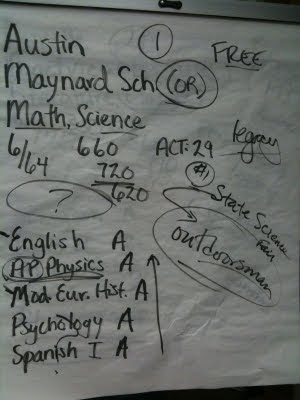 Austin 1 FREE
Maynard Sch (OR)
Math, Science legacy
6/64 660 ACT: 29
720 #1
620 State Science Fair
? outdoorsman
English A
AP Physics A
Mod. Eur. Hist. A
Psychology A
Spanish I A